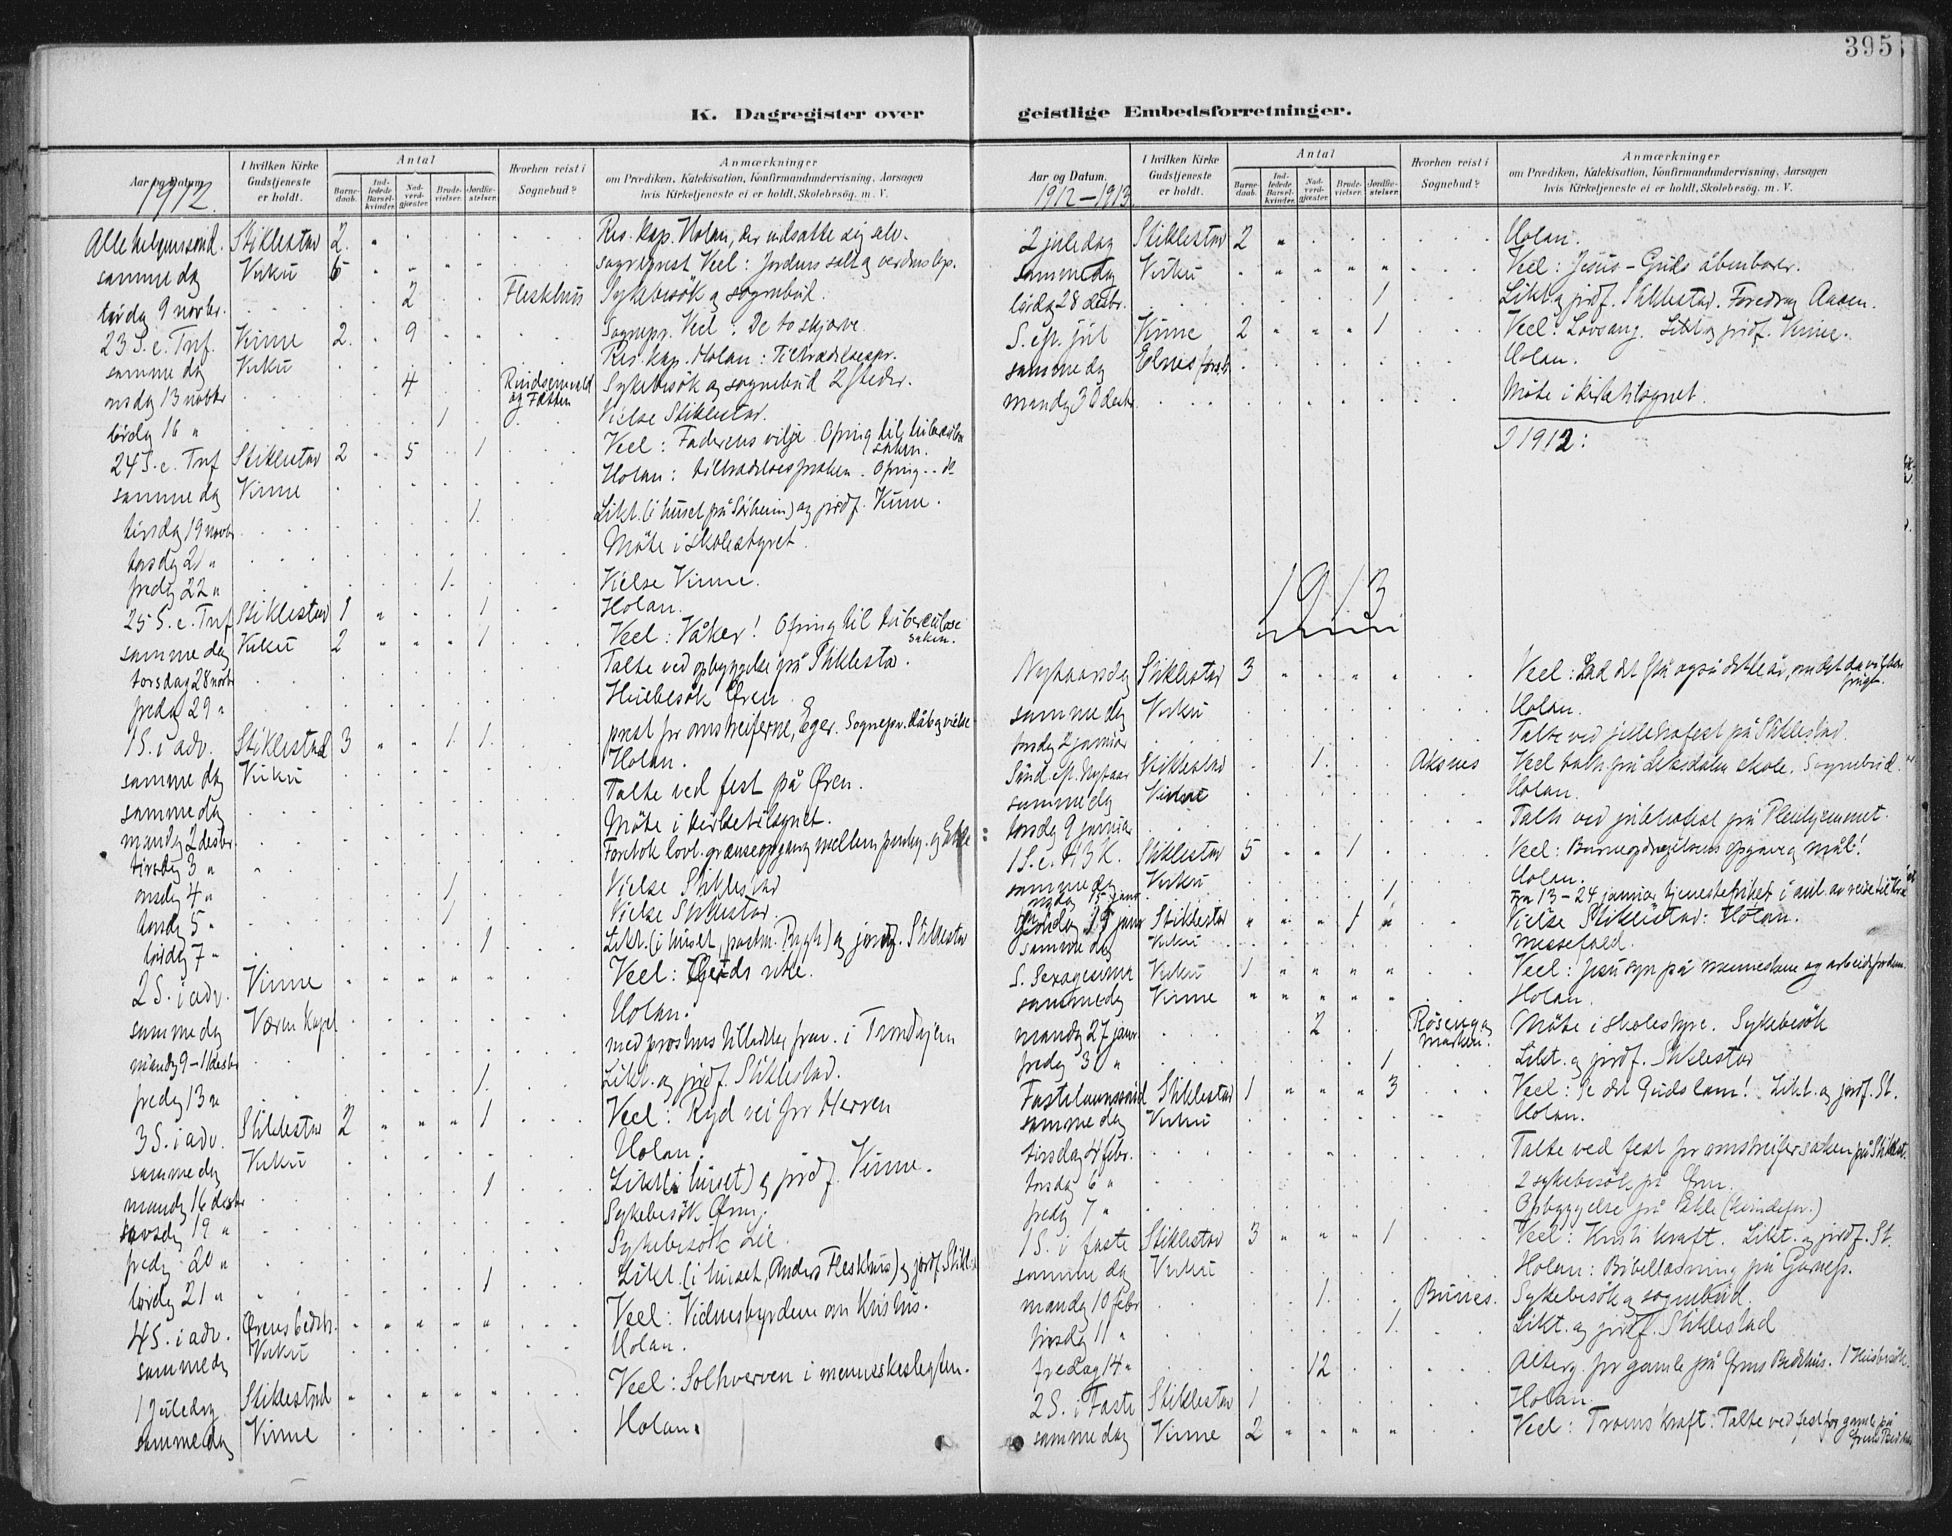 395
K. Dagregister over geistlige Embedsforretninger.
Aar og Datum. 1912.
I hvilken Kirke Gudstjeneste er holdt.
Antal
Barnedaab. Indledede Barselkvinder. Nadverdgjæster. Brudevielser. Jordfæstelser.
Hvorhen reist i Sognebud?
Anmærkninger
om Prædiken, Katekisation, Konfirmandundervisning, Aarsagen
hvis Kirketjeneste ei er holdt, Skolebesøg. m. V.
Allehelgenssønd. Stiklestad 2. Res. kap. Holan, der indsatte sig selv.
samme dag Vuku 6 sogneprest Veel: Jordens salt og verdens lys.
lørdag 9 novbr. 2 Fleskhus Sykebesök og sognebud.
23 S. e. Tref. Vinne 2. 9 Sognepr. Veel: De to skjærve
samme dag Vuku Res. kap. Holan: Tiltrædelsespr.
onsdag 13 novbr 4 og Fætten Sykebesök og sognebud 2 steder.
lördag 16 " 1. Vielse Stiklestad.
24 S. e. Tref Stiklestad 2 5 1 Veel: Faderens vilje. Ofring til tuberkulosesaken.
samme dag Vinne Holan: tiltrædelsespræken. Ofring
tirsdag 19 novbr 1. Likt. (i huset på Sørheim) og jordf. Vinne.
torsdag 21 " Möte i skolestyret.
fredag 22 " 1. Vielse Vinne.
25 S. e. Tref Stiklestad 1 1 Holan.
samme dag Vuku 2 1 Veel: Våker! Ofring til tuberkulosesaken.
torsdag 28 novbr Talte ved opbyggelse på Stiklestad.
fredag 29 " Husbesök Øren
1 S. i adv. Stiklestad 3 1. 1. prest for omstreiferne, Eger. Sognepr. dåb og vielse
samme dag Vuku Holan.
samme dag Talte ved fest på Øren.
mandag 2 desbr. Möte i kirketilsynet.
tirsdag 3 " Foretok lovl. grænseopgang mellem
onsdag 4 " 1 Vielse Stiklestad
torsdag 5 " 1 Vielse Stiklestad.
lördag 7 " 1 Likt. (i huset, Rygh) og jordf. Stiklestad
2 S. i adv. Vinne Veel: Guds rike.
samme dag Væren Kapel Holan.
mandag 9-11 desbr med prostens tilladelse
fredag 13 " 1. Likt. og jordf. Stiklestad.
3 S. i adv. Stiklestad 2 1 Veel: Ryd vei for Herren
samme dag Vuku Holan.
mandag 16 desbr 1 Likt. (i huset) og jordf. Vinne.
torsdag 19 " Sykebesök Øren.
fredag 20 " Sykebesök Lie.
lördag 21 " 1 Likt. (i huset, Anders Fleskhus) og jordf. Stikl.
4 S. i adv. Ørens bedeh. Veel: Vidnesbyrdene om Kristus.
samme dag Vuku Holan.
1 juledag Stiklestad Veel: Solhverven i menneskeslegten.
samme dag Vinne Holan.
Aar og Datum. 1912-1913.
I hvilken Kirke Gudstjeneste er holdt.
Antal
Barnedaab. Indledede Barselkvinder. Nadverdgjæster. Brudevielser. Jordfæstelser.
Hvorhen reist i Sognebud?
Anmærkninger
om Prædiken, Katekisation, Konfirmandundervisning, Aarsagen
hvis Kirketjeneste ei er holdt, Skolebesøg. m. V.
2 juledag Stiklestad 2 Holan.
samme dag Vuku Veel: Jesus - Guds åbenbarer.
lördag 28 desbr. 1 Likt. og jordf. Stiklestad. Foredrag Aasen.
S. ef. jul Vinne 2 1 Veel: Lovsang. Likt og jordf. Vinne.
samme dag Holan.
mandag 30 desbr Möte i kirketilsynet.
I 1912:
1913
Nytaarsdag Stiklestad 3 Veel: Lad det stå også dette år,
samme dag Vuku Holan.
torsdag 2 januar Talte ved juletrefest på Stiklestad
Sönd. ef. Nytaar Stiklestad 1. Aksnes Veel skole. Sognebud.
samme dag Holan.
torsdag 9 januar Talte ved juletrefest på Pleiehjemmet.
1 S. e. H3K. Stiklestad 5 1 Veel: Barneopdragelsens opgave og mål!
samme dag Vuku Holan.
1 Fra 13-24 januar tjenestefrihet i anl. av reise til
Stiklestad 1 Vielse Stiklestad: Holan.
samme dag Vuku messefald.
S. Sexagesima Vuku 1 Veel: Jesu syn på menneskene og arbeidet for dem.
samme dag Vinne Holan.
mandag 27 januar 2 Möte i skolestyre. Sykebesök
fredag 31 " 1 Likt. og jordf. Stiklestad
Fastelavnssönd Stiklestad 1 3 Veel: Se det Guds lam! Likt. og jordf. St.
samme dag Vuku Holan.
tirsdag 4 febr. Talte ved fest for omstreifersaken på Stiklest.
torsdag 6 " 2 sykebesök på Øren.
fredag 7 " Opbyggelse på Ekle (kvindefor.)
1 S. i faste Stiklestad 3 1 Veel: Kristi kraft. Likt. og jordf. St.
samme dag Vuku Holan: Bibellæsning på
mandag 10 febr 1. Sykebesök og sognebud.
tirsdag 11 " 1. Likt. og jordf. Stiklestad
fredag 14 " 12 Alterg. for gamle på Ørens Bedehus. 1 Husbesök.
2 S. i Faste Stiklestad 1 Holan
samme dag Vinne 2 Veel: Troens kraft. Talte ved fest for gamle på Ørens Bedehus